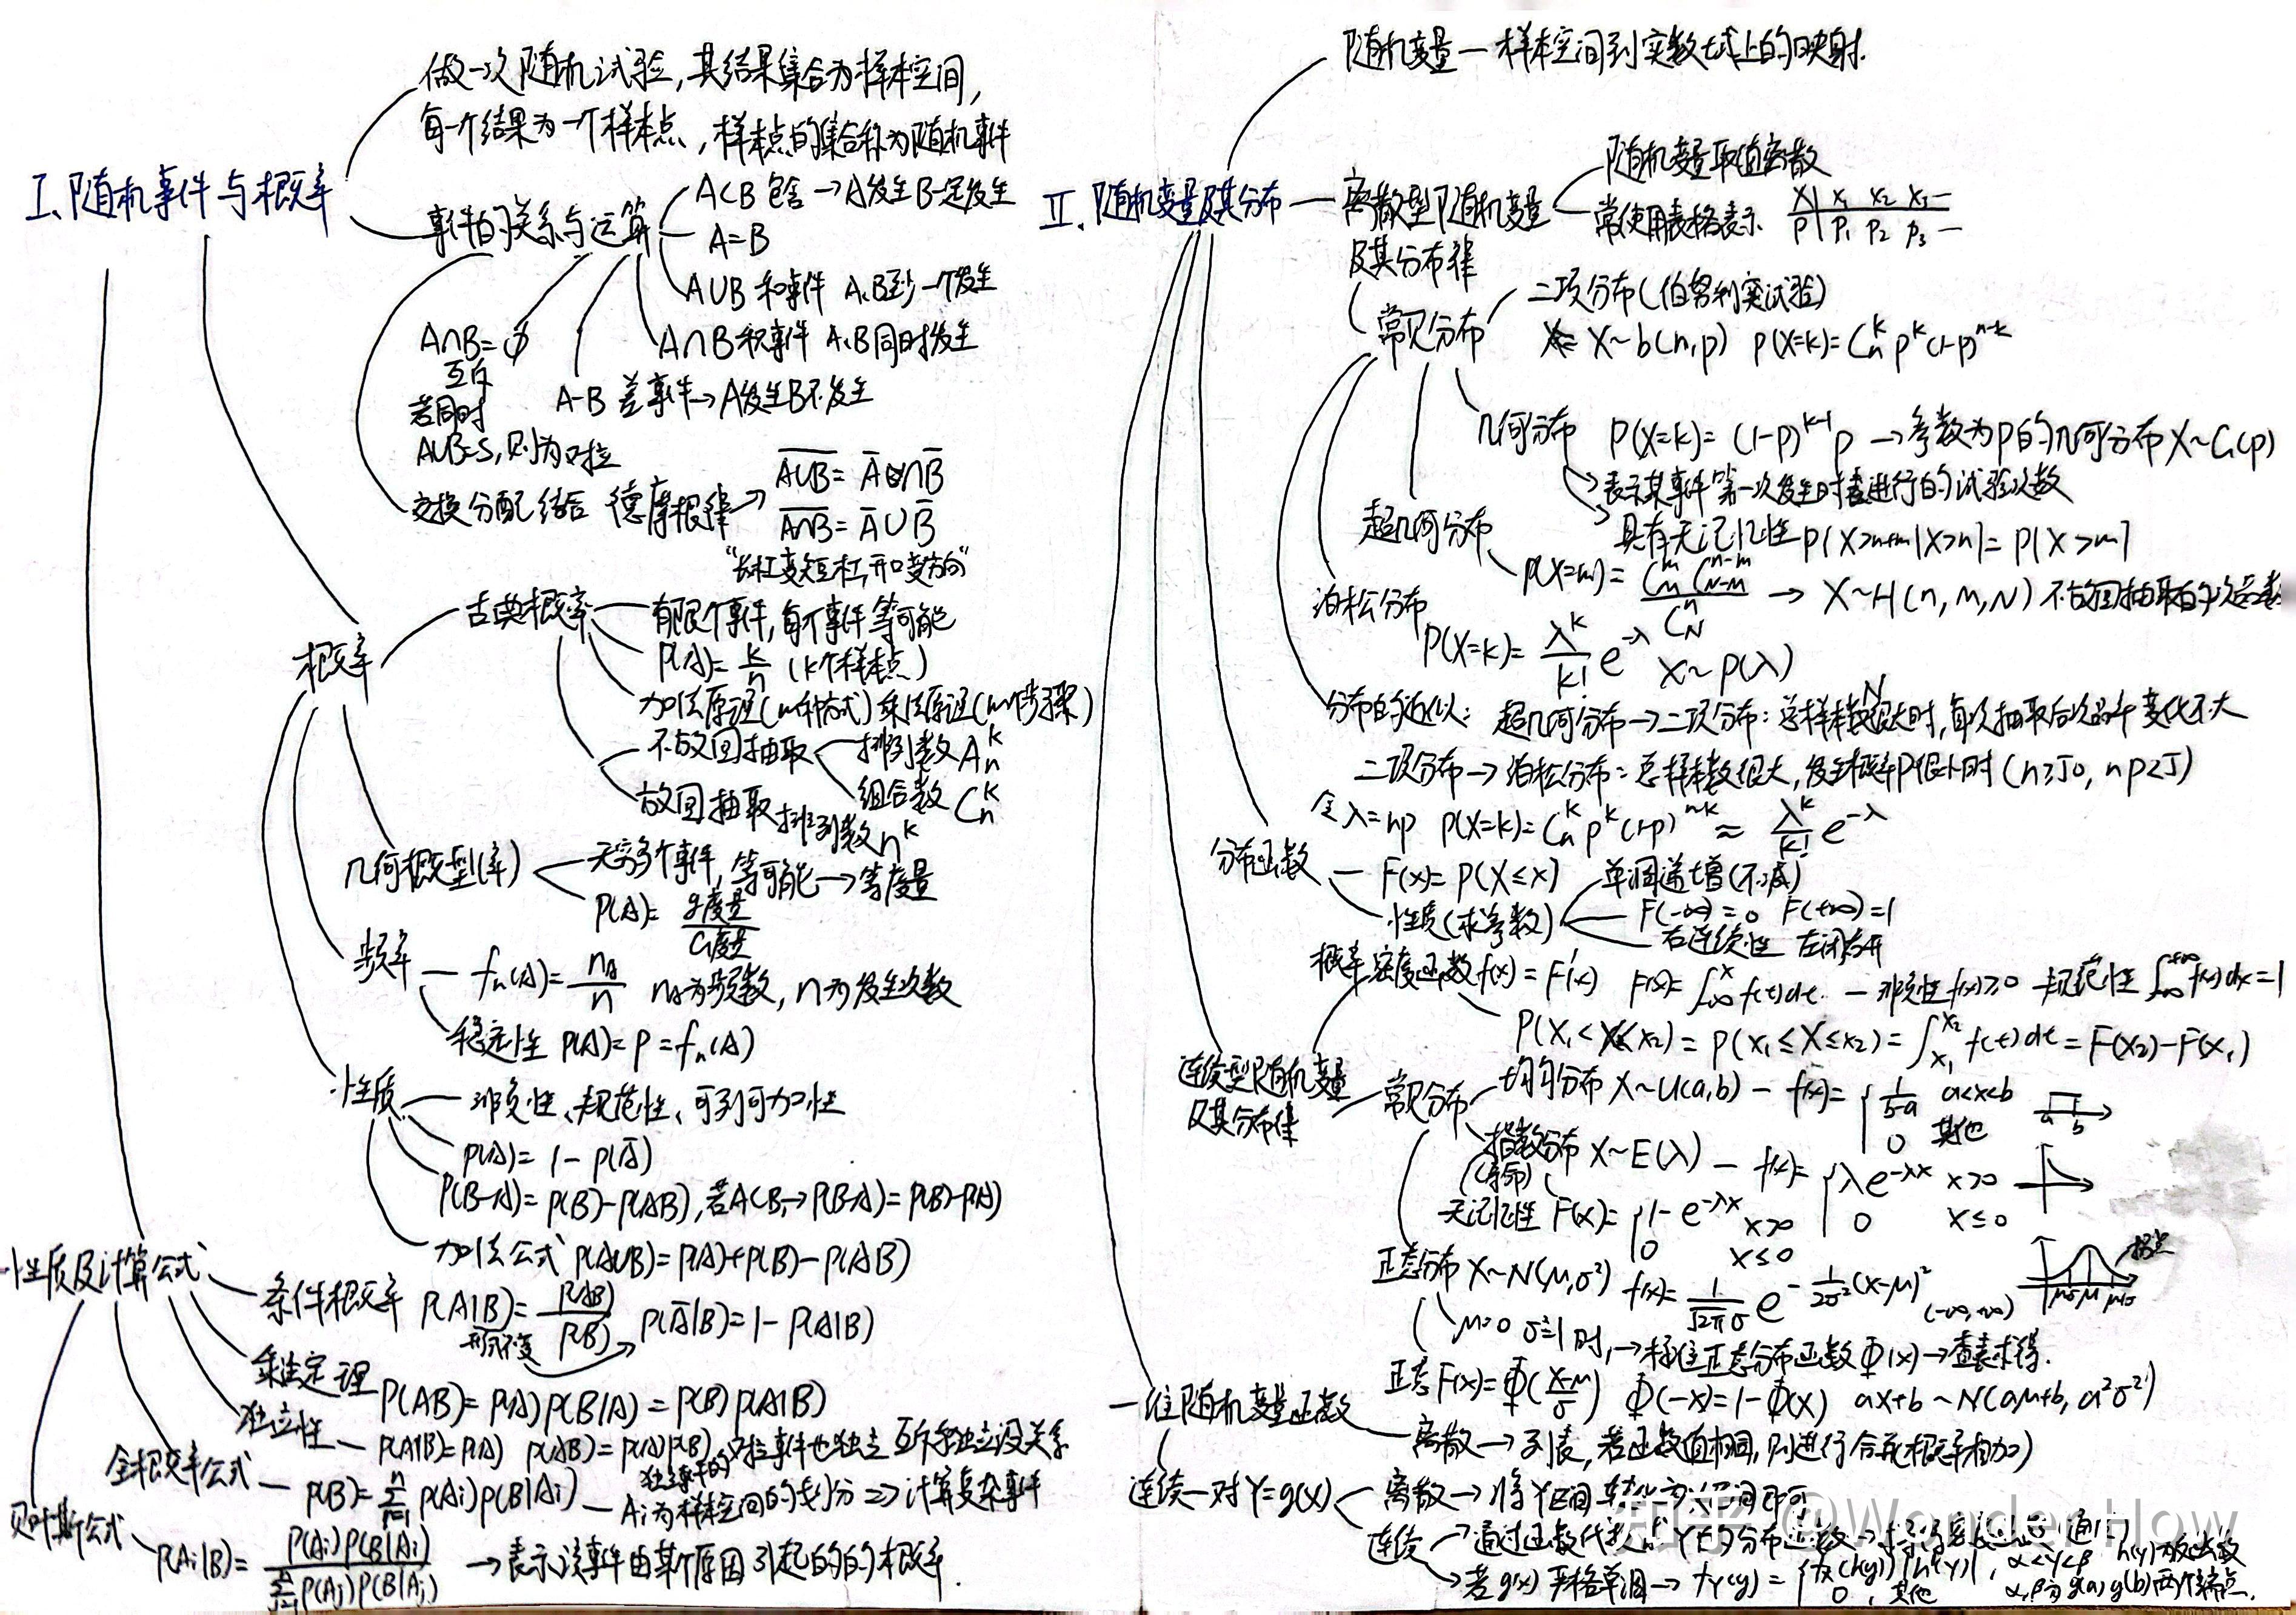 做一次随机试验,其结果集合为样本空间,
每一个结果为一个样本点,样本点的集合称为随机事件
I、随机事件与概率
事件的关系与运算
A⊂B 包含→A发生B一定发生
A=B
A∪B 和事件 A、B至少一个发生
A∩B 积事件 A、B同时发生
A-B 差事件→A发生B不发生
A∩B=∅
互斥
若同时
A∪B=S,则为对立
交换 分配 结合 德摩根律→
\overline{A∪B}=\overline{A}∩\overline{B}
\overline{A∩B}=\overline{A}∪\overline{B}
“长杠变短杠,开口变方向”
概率
古典概率
有限个事件,每个事件等可能
P(A)=k/n (k个样本点)
加法原理(m种方式) 乘法原理(m个步骤)
不放回抽取
排列数 A_n^k
组合数 C_n^k
放回抽取 排列数 n^k
几何概型(率)
无穷多个事件,等可能→等度量
P(A)=g度量/G度量
频率
f_n(A)=n_A/n n_A为频数,n为发生次数
稳定性 P(A)=P=f_n(A)
性质
非负性、规范性、可列可加性
P(A)=1-P(\overline{A})
P(B-A)=P(B)-P(AB),若A⊂B,→P(B-A)=P(B)-P(A)
加法公式 P(A∪B)=P(A)+P(B)-P(AB)
性质及计算公式
条件概率 P(A|B)=P(AB)/P(B) P(\overline{A}|B)=1-P(A|B)
形式不变
乘法定理 P(AB)=P(A)P(B|A)=P(B)P(A|B)
独立性 P(A|B)=P(A) P(AB)=P(A)P(B)
独立事件的对立事件也独立 互斥和独立没关系
全概率公式 P(B)=∑_{i=1}^n P(A_i)P(B|A_i) — A_i为样本空间的划分⇒计算复杂事件
贝叶斯公式 P(A_i|B)=P(A_i)P(B|A_i)/∑_{j=1}^n P(A_j)P(B|A_j) →表示该事件由某个原因引起的的概率.
II.随机变量及其分布
随机变量—样本空间到实数域上的映射.
离散型随机变量
及其分布律
随机变量取值离散
常使用表格表示
X | x₁ x₂ x₃ —
P | P₁ P₂ P₃ —
常见分布
二项分布(伯努利实试验)
X~b(n,p) P(X=k)=C_n^k p^k(1-p)^{n-k}
几何分布 P(X=k)=(1-p)^{k-1}p →参数为P的几何分布 X~G(p)
表示某事件第一次发生时进行的试验次数
具有无记忆性 P{X>n+m|X>n}=P{X>m}
超几何分布
P(X=m)=C_M^m C_{N-M}^{n-m}/C_N^n → X~H(n,M,N) 不放回抽取的次品数
泊松分布
P(X=k)=λ^k/k! e^{-λ} X~P(λ)
分布的近似: 超几何分布→二项分布:总样本数N很大时,每次抽取后次品率变化不大
二项分布→泊松分布:总样本数很大,发生概率P很小时(n≥50, np≥5)
令λ=np P(X=k)=C_n^k p^k(1-p)^{n-k}≈λ^k/k! e^{-λ}
分布函数
F(x)=P(X≤x)
性质(求参数)
单调递增(不减)
F(-∞)=0 F(+∞)=1
右连续性 左闭右开
连续型随机变量
及其分布律
概率密度函数f(x)=F'(x) F(x)=∫_{-∞}^x f(t)dt. — 非负性f(x)≥0 — 规范性∫_{-∞}^{+∞}f(x)dx=1
P(x₁<X≤x₂)=P(x₁≤X≤x₂)=∫_{x₁}^{x₂}f(t)dt=F(x₂)-F(x₁)
常见分布
均匀分布 X~U(a,b) — f(x)={1/(b-a) a<x<b
0 其他
a b
指数分布 X~E(λ) — f(x)={λe^{-λx} x>0
0 x≤0
(寿命)
无记忆性 F(x)={1-e^{-λx} x>0
0 x≤0
正态分布 X~N(μ,σ²) f(x)=1/(√2π σ) e^{-1/(2σ²)(x-μ)²} (-∞,+∞)
拐点
μ-σ μ μ+σ
μ=0 σ²=1时,→标准正态分布函数Φ(x)→查表求得.
正态 F(x)=Φ((x-μ)/σ) Φ(-x)=1-Φ(x) aX+b~N(aμ+b, a²σ²)
一维随机变量函数
离散→列表,若函数值相同,则进行合并(概率相加)
连续一对Y=g(X)
离散→将Y区间转化为X区间即可
连续
通过函数代换求Y的分布函数
若g(x)严格单调→f_Y(y)={f_X(h(y))|h'(y)|, α<y<β h(y)为反函数
0, 其他 α,β为g(a) g(b)两个端点.
知乎 @WonderHow